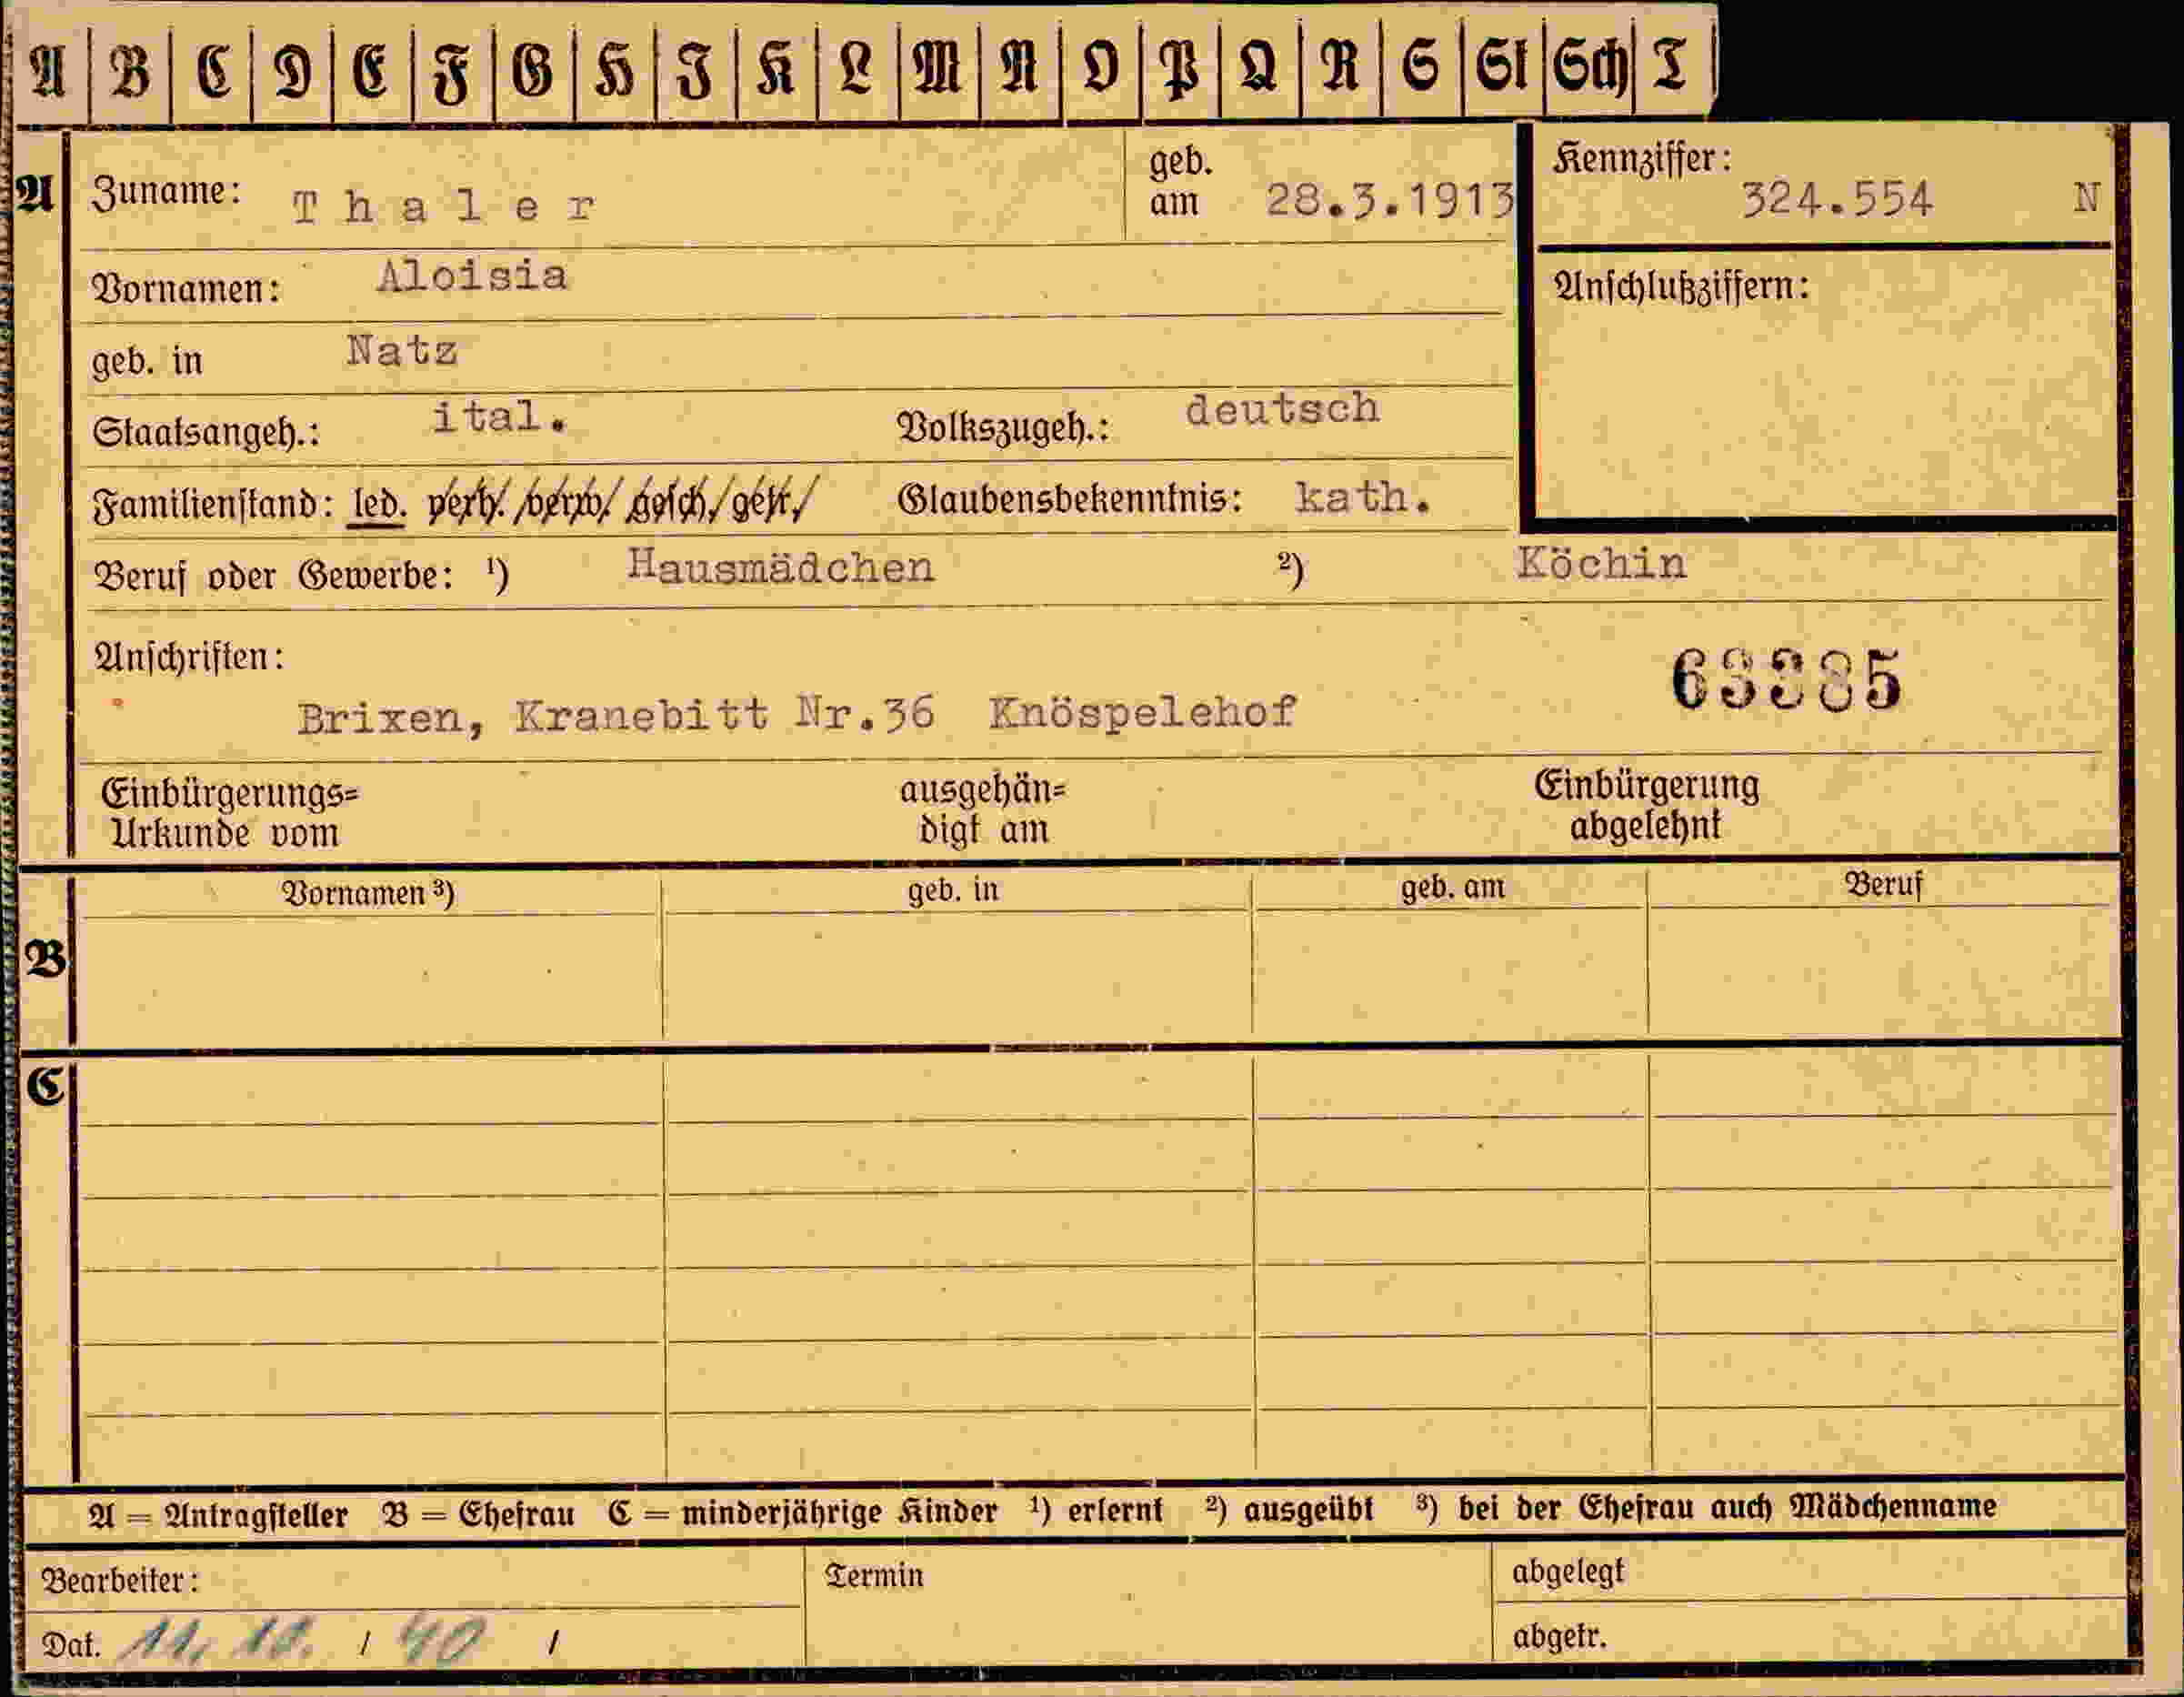 A B C D E F G H J K L M N O P Q R S St Sch T
A Zuname: Thaler geb. am 28.3.1913 Kennziffer: 324.554 N
Vornamen: Aloisia Anschlußziffern:
geb. in Natz
Staatsangeh.: ital. Volkszugeh.: deutsch
Familienstand: led. verh. verw. gesch. getr. Glaubensbekenntnis: kath.
Beruf oder Gewerbe: ¹) Hausmädchen ²) Köchin
Anschriften: 63385
Brixen, Kranebitt Nr.36 Knöspelehof
Einbürgerungs= ausgehän= Einbürgerung
Urkunde vom digt am abgelehnt
B Vornamen ³) geb. in geb. am Beruf
C
A = Antragsteller B = Ehefrau C = minderjährige Kinder ¹) erlernt ²) ausgeübt ³) bei der Ehefrau auch Mädchenname
Bearbeiter: Termin abgelegt
Dat. 11. 10. / 40 / abgetr.